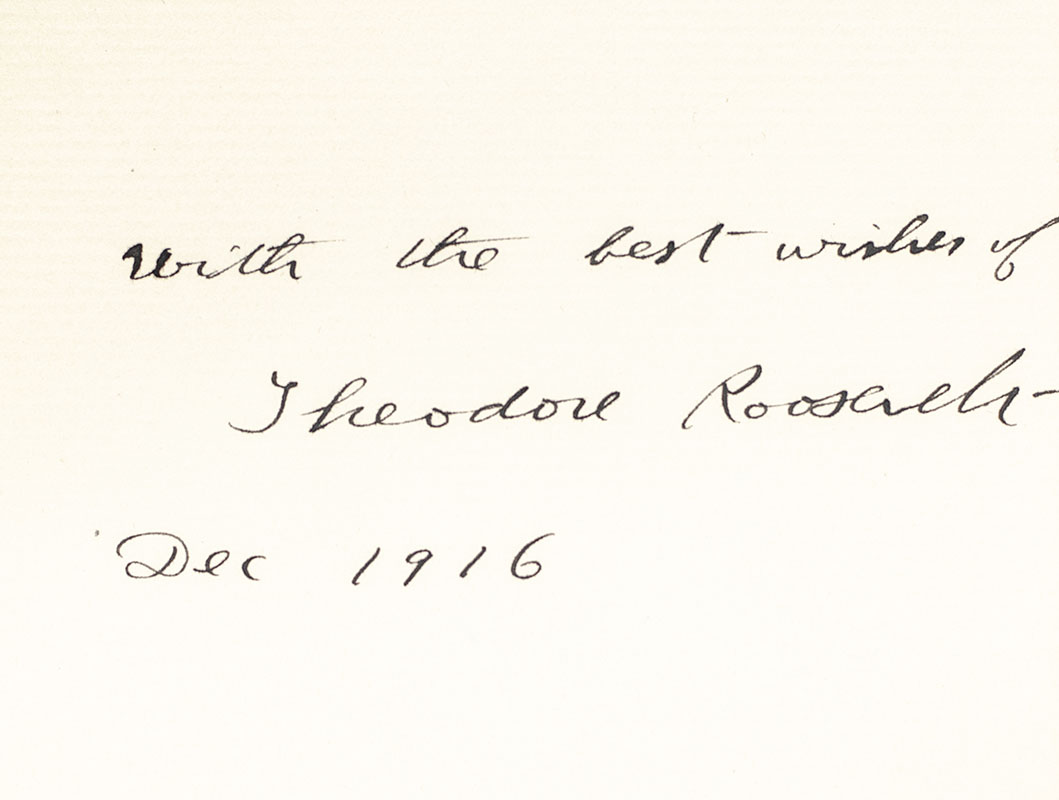 with the best wishes of
Theodore Roosevelt
Dec 1916